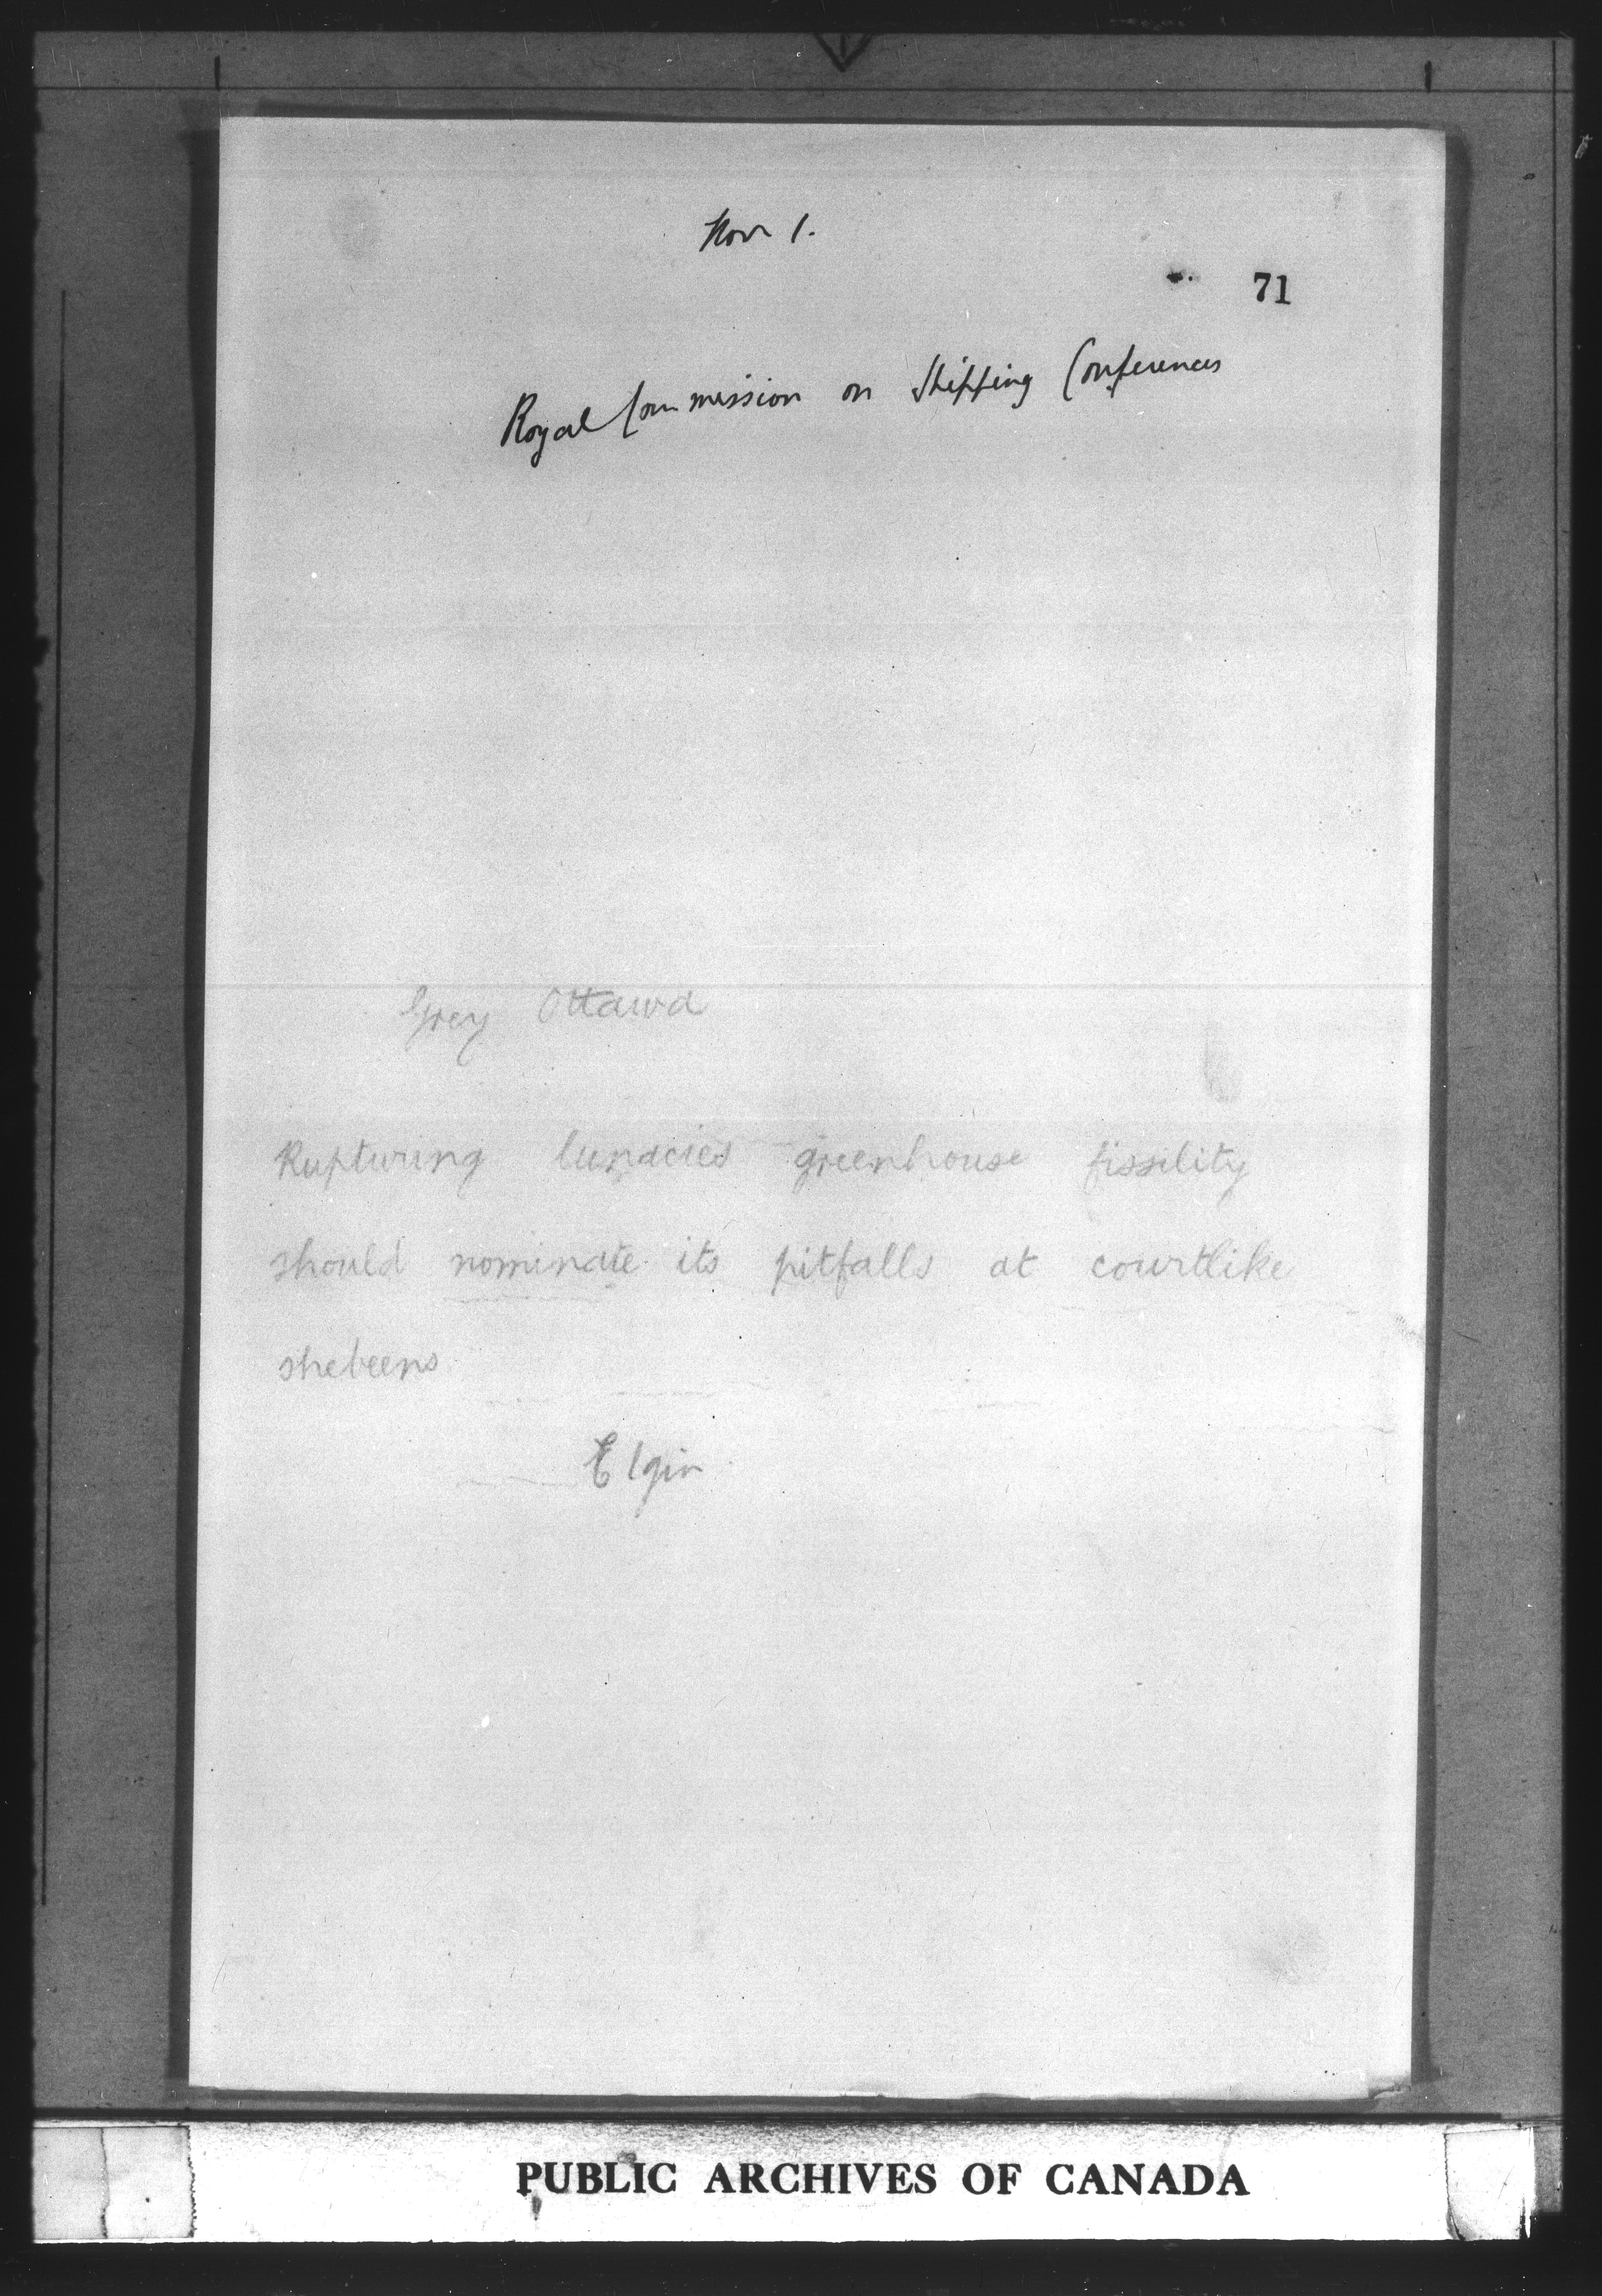 Nov 1.
71
Royal Commission on Shipping Conferences
Grey Ottawa
Rupturing lunacies greenhouse fissility
should nominate its pitfalls at courtlike
shebeens
Elgin
PUBLIC ARCHIVES OF CANADA